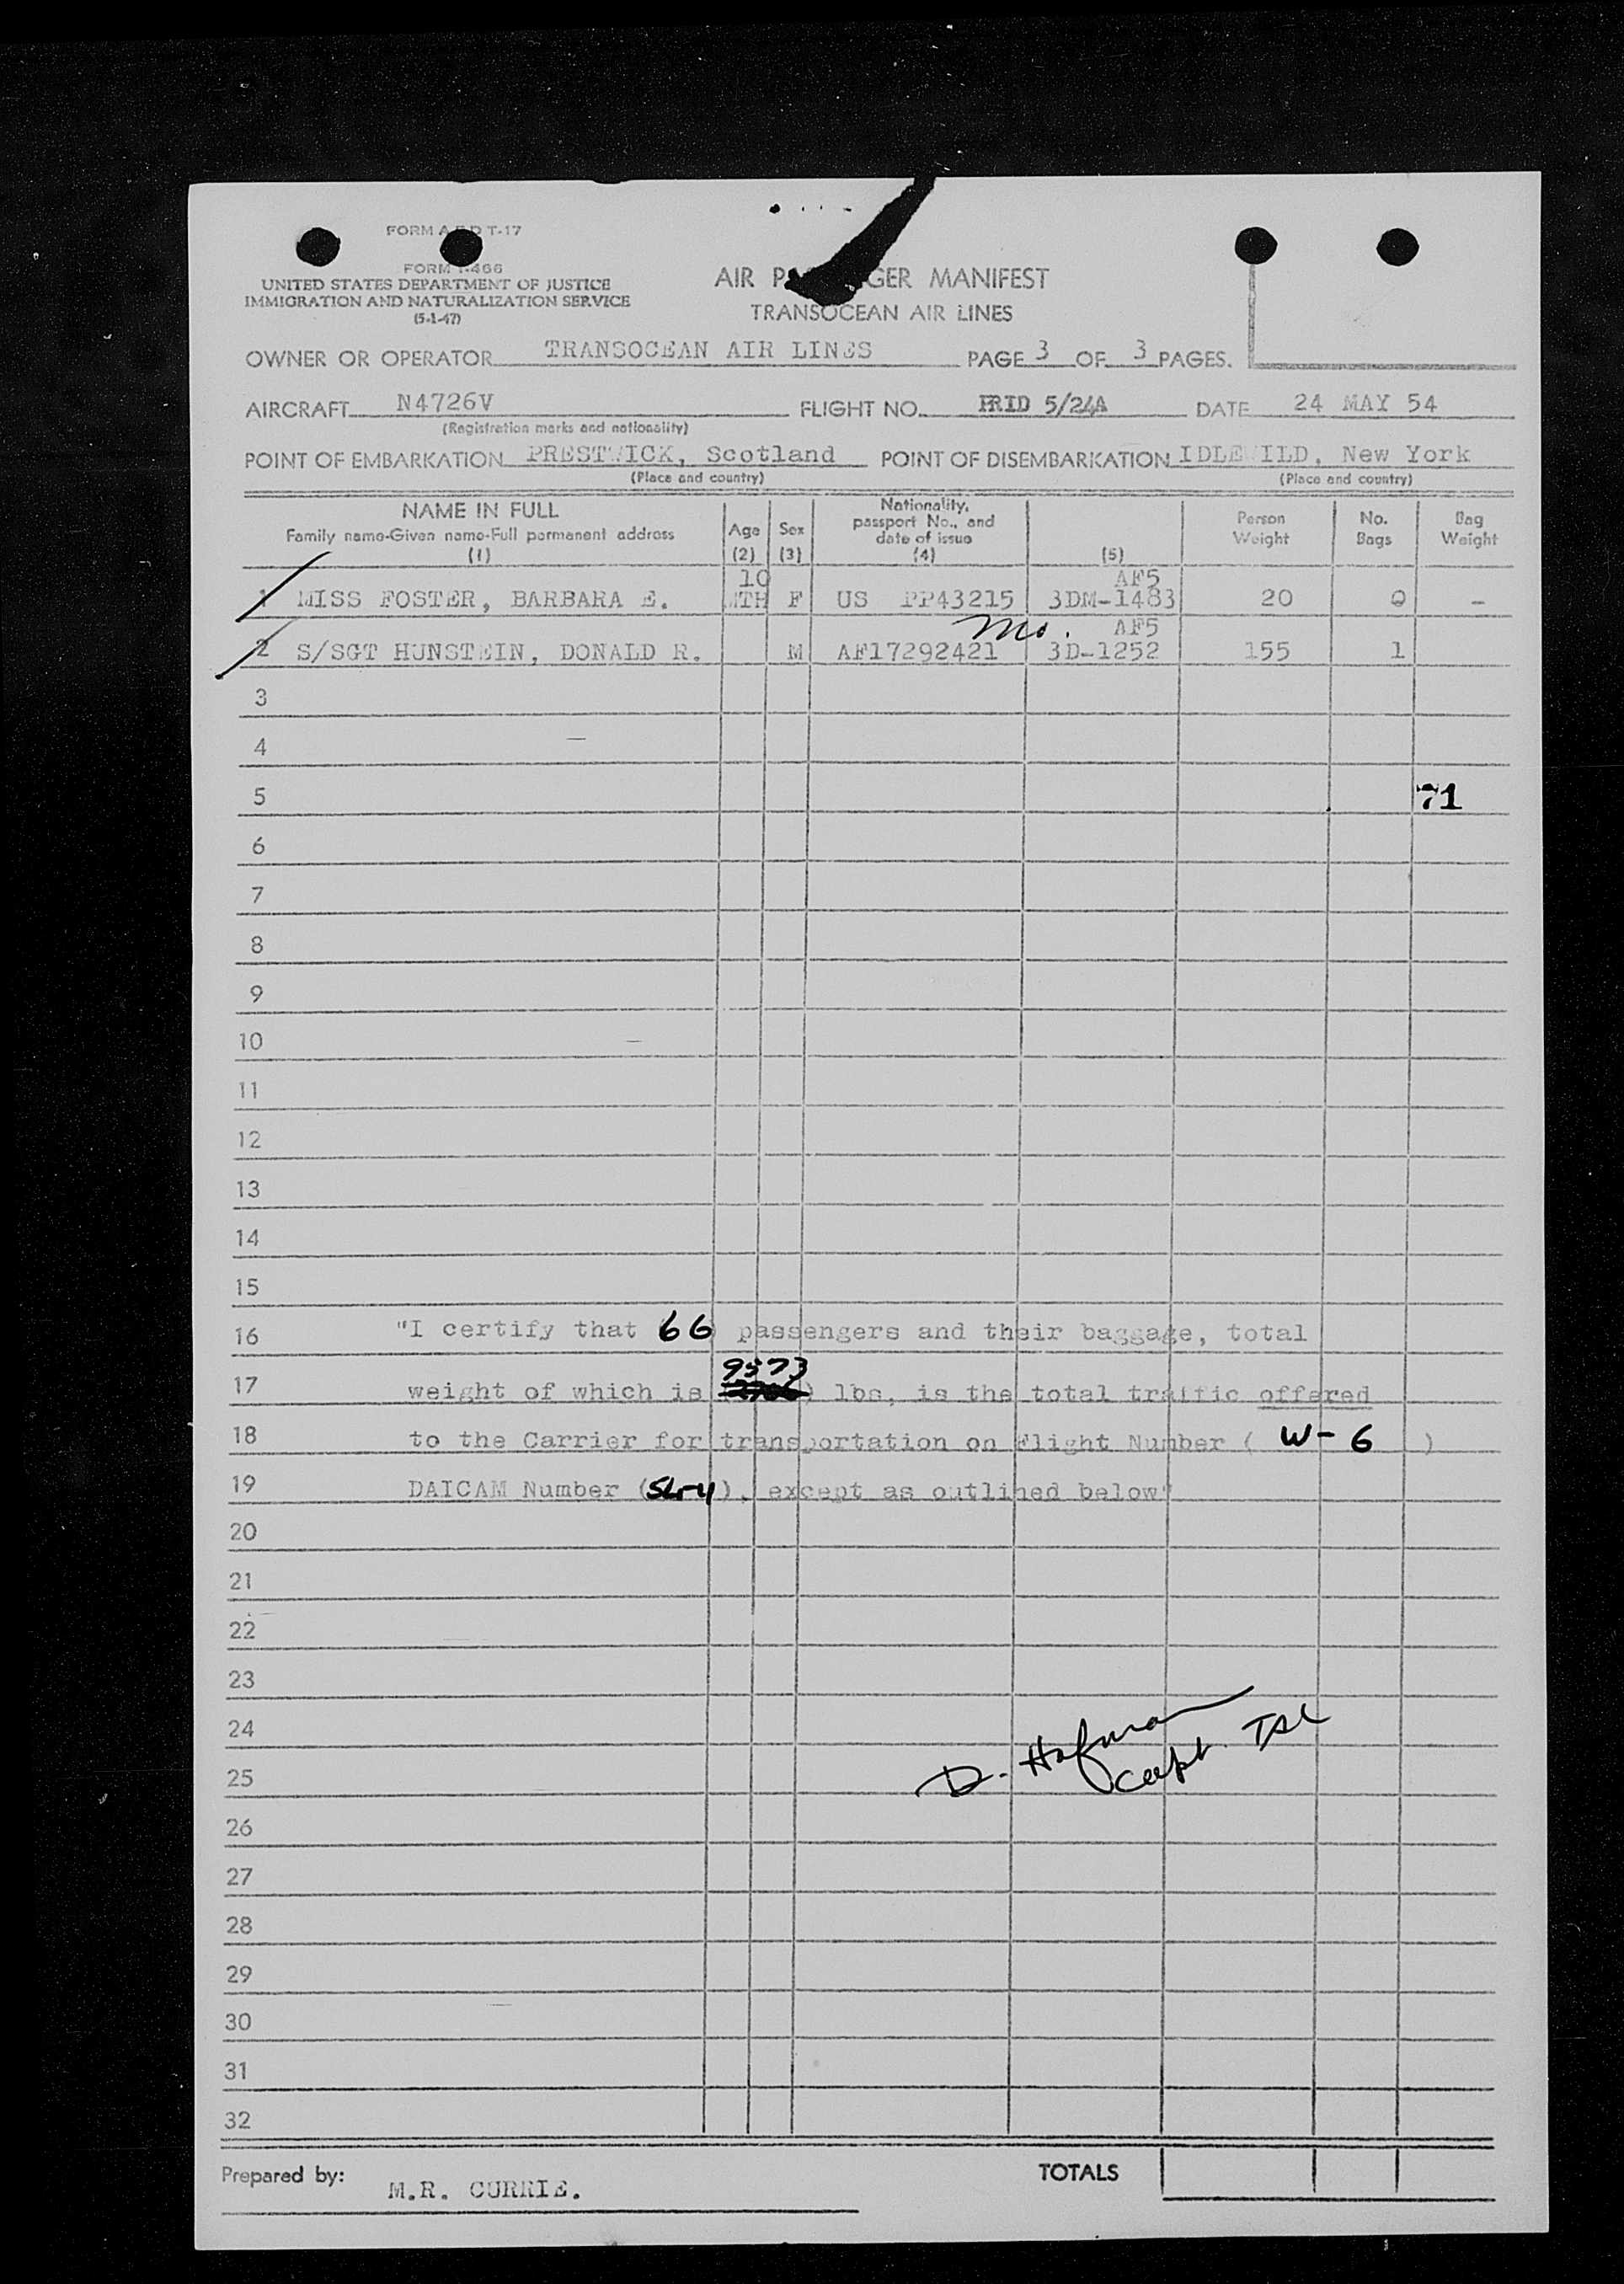 FORM T-17
FORM I-466
UNITED STATES DEPARTMENT OF JUSTICE
IMMIGRATION AND NATURALIZATION SERVICE
(5-1-47)
AIR PA GER MANIFEST
TRANSOCEAN AIR LINES
OWNER OR OPERATOR TRANSOCEAN AIR LINES PAGE 3 OF 3 PAGES.
AIRCRAFT N4726V FLIGHT NO. PRID 5/24A DATE 24 MAY 54
(Registration marks and nationality)
POINT OF EMBARKATION PRESTWICK, Scotland POINT OF DISEMBARKATION IDLEWILD, New York
(Place and country) (Place and country)
NAME IN FULL
Family name-Given name-Full permanent address
(1)
Age
(2)
Sex
(3)
Nationality,
passport No., and
date of issue
(4)
(5)
Person
Weight
No.
Bags
Bag
Weight
10 AF5
1 MISS FOSTER, BARBARA E. MTH F US PP43215 3DM-1483 20 0 -
Mo. AF5
2 S/SGT HUNSTEIN, DONALD R. M AF17292421 3D-1252 155 1
3
4
5 71
6
7
8
9
10
11
12
13
14
15
16 "I certify that 66 passengers and their baggage, total
9573
17 weight of which is ) lbs, is the total traffic offered
18 to the Carrier for transportation on Flight Number ( W-6 )
19 DAICAM Number ( ), except as outlined below"
20
21
22
23
24
25
D. Hofman
Capt.
26
27
28
29
30
31
32
Prepared by: M.R. CURRIE. TOTALS